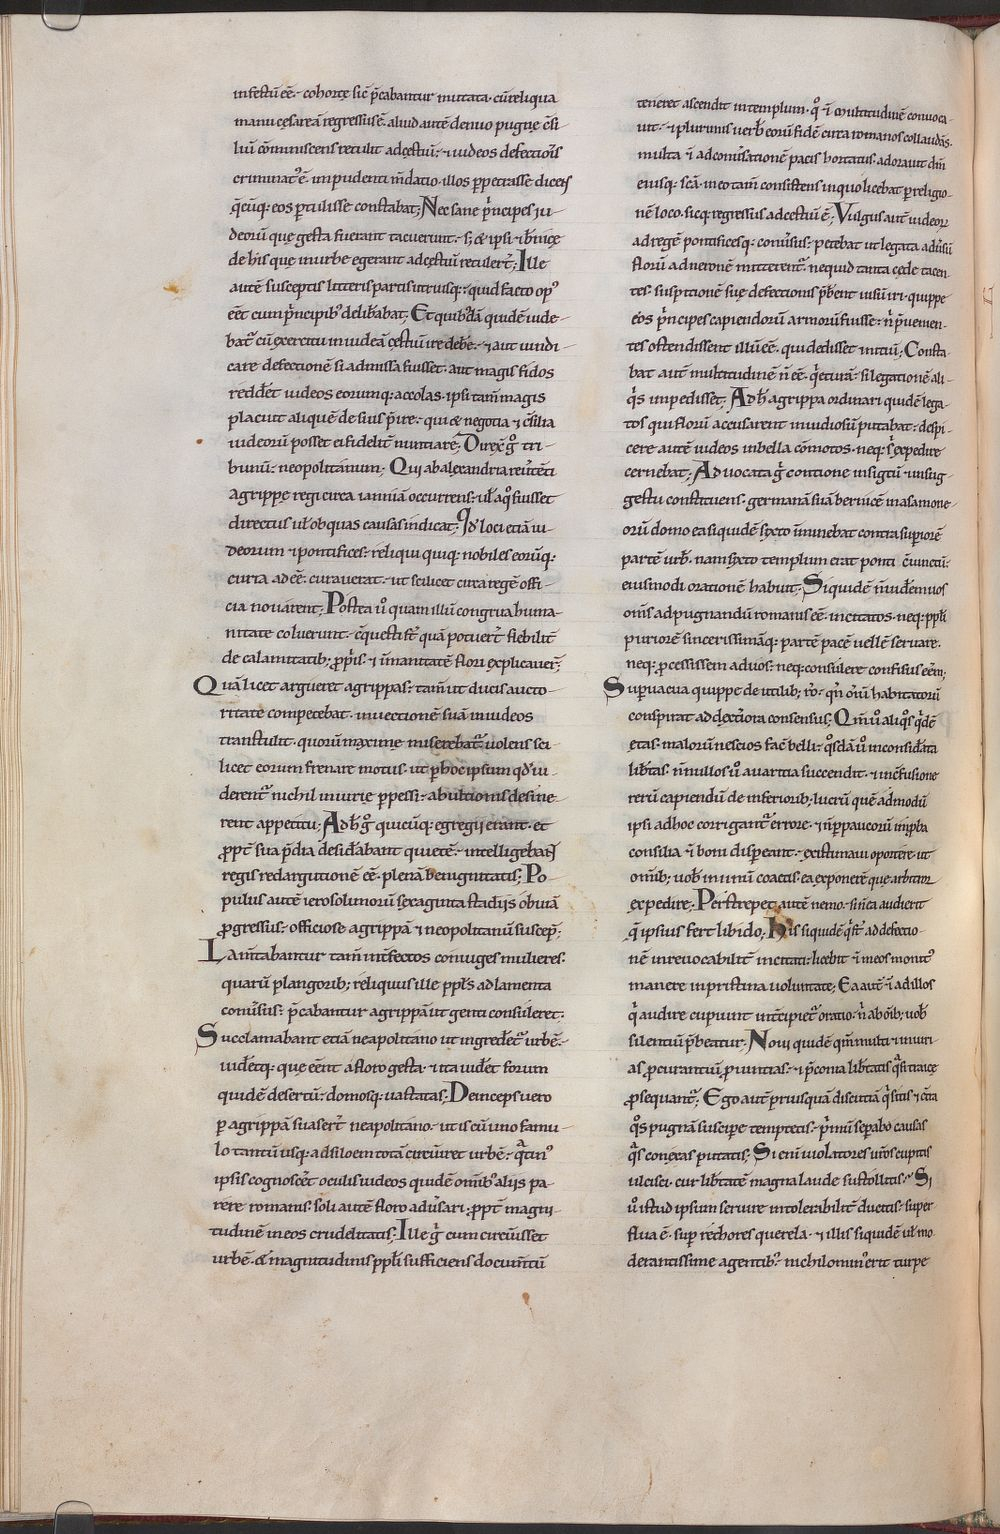 infestū eē. cohortę sic̄ p̄cabantur mutata. cū reliqua
manu cęsareā regressus ē. aliud autē denuo pugnę c̄si-
liū cōminiscens retulit ad cęstiū. & iudeos defectiōis
criminat᷒ ē. impudenti m̄datio. illos ꝑpetrasse diceɴs
q̄cūq; eos ꝑtulisse constabat; Nec sane p̄ncipes iu-
deorū quę gesta fuerant tacuerunt. s; & ipsi & bernice
de his quę in urbe egerant ad cęstiū retulert̄; Ille
autē susceptis litteris partis utriusq; quid facto op᷒
eēt cum p̄ncipib᷒ delib̄abat; Et quib᷒dā quidē uide-
bat᷑ cū exercitu in iudeā cęstiū ire debē̄. & aut uindi-
care defectionē si admissa fuisset. aut magis fidos
reddēt iudeos eorumq; accolas. ipsi tam̄ magis
placuit aliquē de suis p̄ire. qui & negotia & c̄silia
iudeorū posset ei fidelit̄ nuntiare; Direx̄ gͦ tri-
bunū. neopolitanum; Qui ab alexandria reūtēti
agrippę regi circa ianniā occurrens. ul̄ a qͦ fuisset
directus ul̄ ob quas causas indicat; Id̄ loci etiā iu-
deorum & pontifices. reliqui quiq; nobiles eorūq;
curia adeē. curauerat. ut scilicet circa regē offi-
cia nouarent; Postea u̾ quam illū congrua huma-
nitate coluerunt. c̄questi st̄ quā potuert̄ flebilit̄
de calamitatib; ꝓpris. & īmanitatē flori explicauer̄;
Quā licet argueret agrippas. tam̄ ut ducis aucto-
ritate competebat. inuectionē suā in iudeos
transtulit. quorū maxime miserebat᷑ uolens sci-
licet eorum frenare motus. ut p hoc ipsum qd̄ ui-
derent᷑ nichil iniurię ꝑpessi. ab ultionis desine-
rent appetitu; Ad h̄ gͦ quicūq; egregij erant. et
ꝓpt̄ sua p̄dia desid̄abant quietē. intelligebaɴt
regis redargutionē eē. plenā benignitatis; Po-
pulus autē ierosolimorū sexaginta stadijs obuiā
ꝓgressus. officiose agrippā & neopolitanū suscep̄;
Lam̄tabantur tam̄ int̄fectos coniuges mulieres.
quarū plangorib; reliquus ille ppl̄s ad lamenta
conūsus. p̄cabantur agrippā ut genti consuleret.
Succlamabant etiā neapolitano ut ingredet᷑ urbē.
iudetq; que eēnt a floro gesta. & ita iudet forum
quidē desertū. domosq; uastatas; Deinceps uero
ꝑ agrippā suasert̄ neapolitano. ut is cū uno famu-
lo tantū usq; ad siloem totā circūiret urbē. q̄tin᷒
ipsis cognoscēt oculis iudeos quidē om̄ib᷒ alijs pa-
rere romanis. soli autē floro adūsari. ꝓpt̄ magni-
tudinē in eos crudelitatis; Ille gͥ cum circūisset
urbē. & magnitudinis ppl̄i sufficiens docum̄tū
teneret ascendit in templum. qͦ & multitudinē conuoca-
uit. & plurimis uerb̄ eorū fidē circa romanos collaudās.
multa & ad conūsationē pacis hortatus. adorauit dm̄
eiusq; scā. in eo tam̄ consistens in quo licebat ꝑ religio-
nē loco. sicq; regressus ad cestiū ē; Vulgus aut̄ iudeoꝝ
ad regē pontificesq; conūsus. petebat ut legata adūsū
florū ad neronē mitterent᷑. ne quid tanta cęde tacen-
tes. suspitionē suę defectionis p̄b̄ent inisū iri. quippe
eos p̄ncipes capiendorū armorū fuisse. n̄ p̄uenien-
tes ostendissent illū eē. qui dedisset initiū; Consta-
bat aut̄ multitudinē n̄ eē. q̄eturā. si legationē ali-
q̄s impedisset; Ad h̄ agrippa ordinari quidē lega-
tos qui florū accusarent inuidiosū putabat. despi-
cere autē iudeos in bella cōmotos. neq; s̄ expedire
cernebat; Aduocata gͥ contione in sigtū & in sug-
gestu constituens. germanā suā bernicē in asamone-
orū domo ea siquidē syxto īminebat contra supiorē
partē urb̄. nam syxto templum erat ponti c̄iunctū.
eiusmodi orationē habuit; Siquidē n̄ uidem uos
om̄s ad pugnandū romanis eē. incitatos. neq; ppl̄i
puriorē sincerissimāq; partē pacē uelle seruare.
neq; ꝓcessissem ad uos. neq; consulere confisus eēm;
Supuacua quippe de utilib; ro. qn̄ om̄iū habitatorū
conspirat ad dextiora consensus; Qm̄ u̾ aliq̄s q̄dē
ętas. malorū nescios fac̄ belli. qͦsdā u̾ inconsid̄ata
lib̄tas. n̄nullos u̾ auaritia succendit. & inc̄fusione
rerū capiendū de inferiorib; lucrū quē admodū
ipsi ad hoc corrigant᷑ errore. & n̄ ꝑ paucorū īproba
consilia & boni dispereant. existimaui oportere. ut
om̄ib; uob̄ in unū coactis. ea exponerē que arbitror
expedire; Perstrepet autē nemo. si n̄ ea audierit
q̄ ipsius fert libido; His siquidē q̄ st̄ ad defectio-
nē inreuocabilit̄ incitati. licebit & in eos monit᷒
manere in pristina uoluntate; Ea aut̄ & ad illos
q̄ audire cupiunt int̄cipiet᷑ oratio. n̄ ab om̄ib; uob̄
silentiū p̄beatur; Noui quidē qm̄ multi & iniuri-
as ꝓcurantiū ꝓuintias. & p̄conia lib̄tatis q̄si tragicę
ꝓsequant᷑; Ego aut̄ priusquā discutiā q̄ sitis & c̄tra
q̄s pugnā suscipe temptetis. p̄mū sepabo causas
q̄s conexas putatis; Si enī uiolatores ur̄os cupitis
ulcisci. cur lib̄tatē magna laude sustollitis; Si
u̾ istud ipsum seruire intolerabilit̄ ductis. super-
flua ē. sup rectores querela. & illis siquidē ul̄ mo-
derantissime agentib᷒. nichilomin᷒ erit turpe